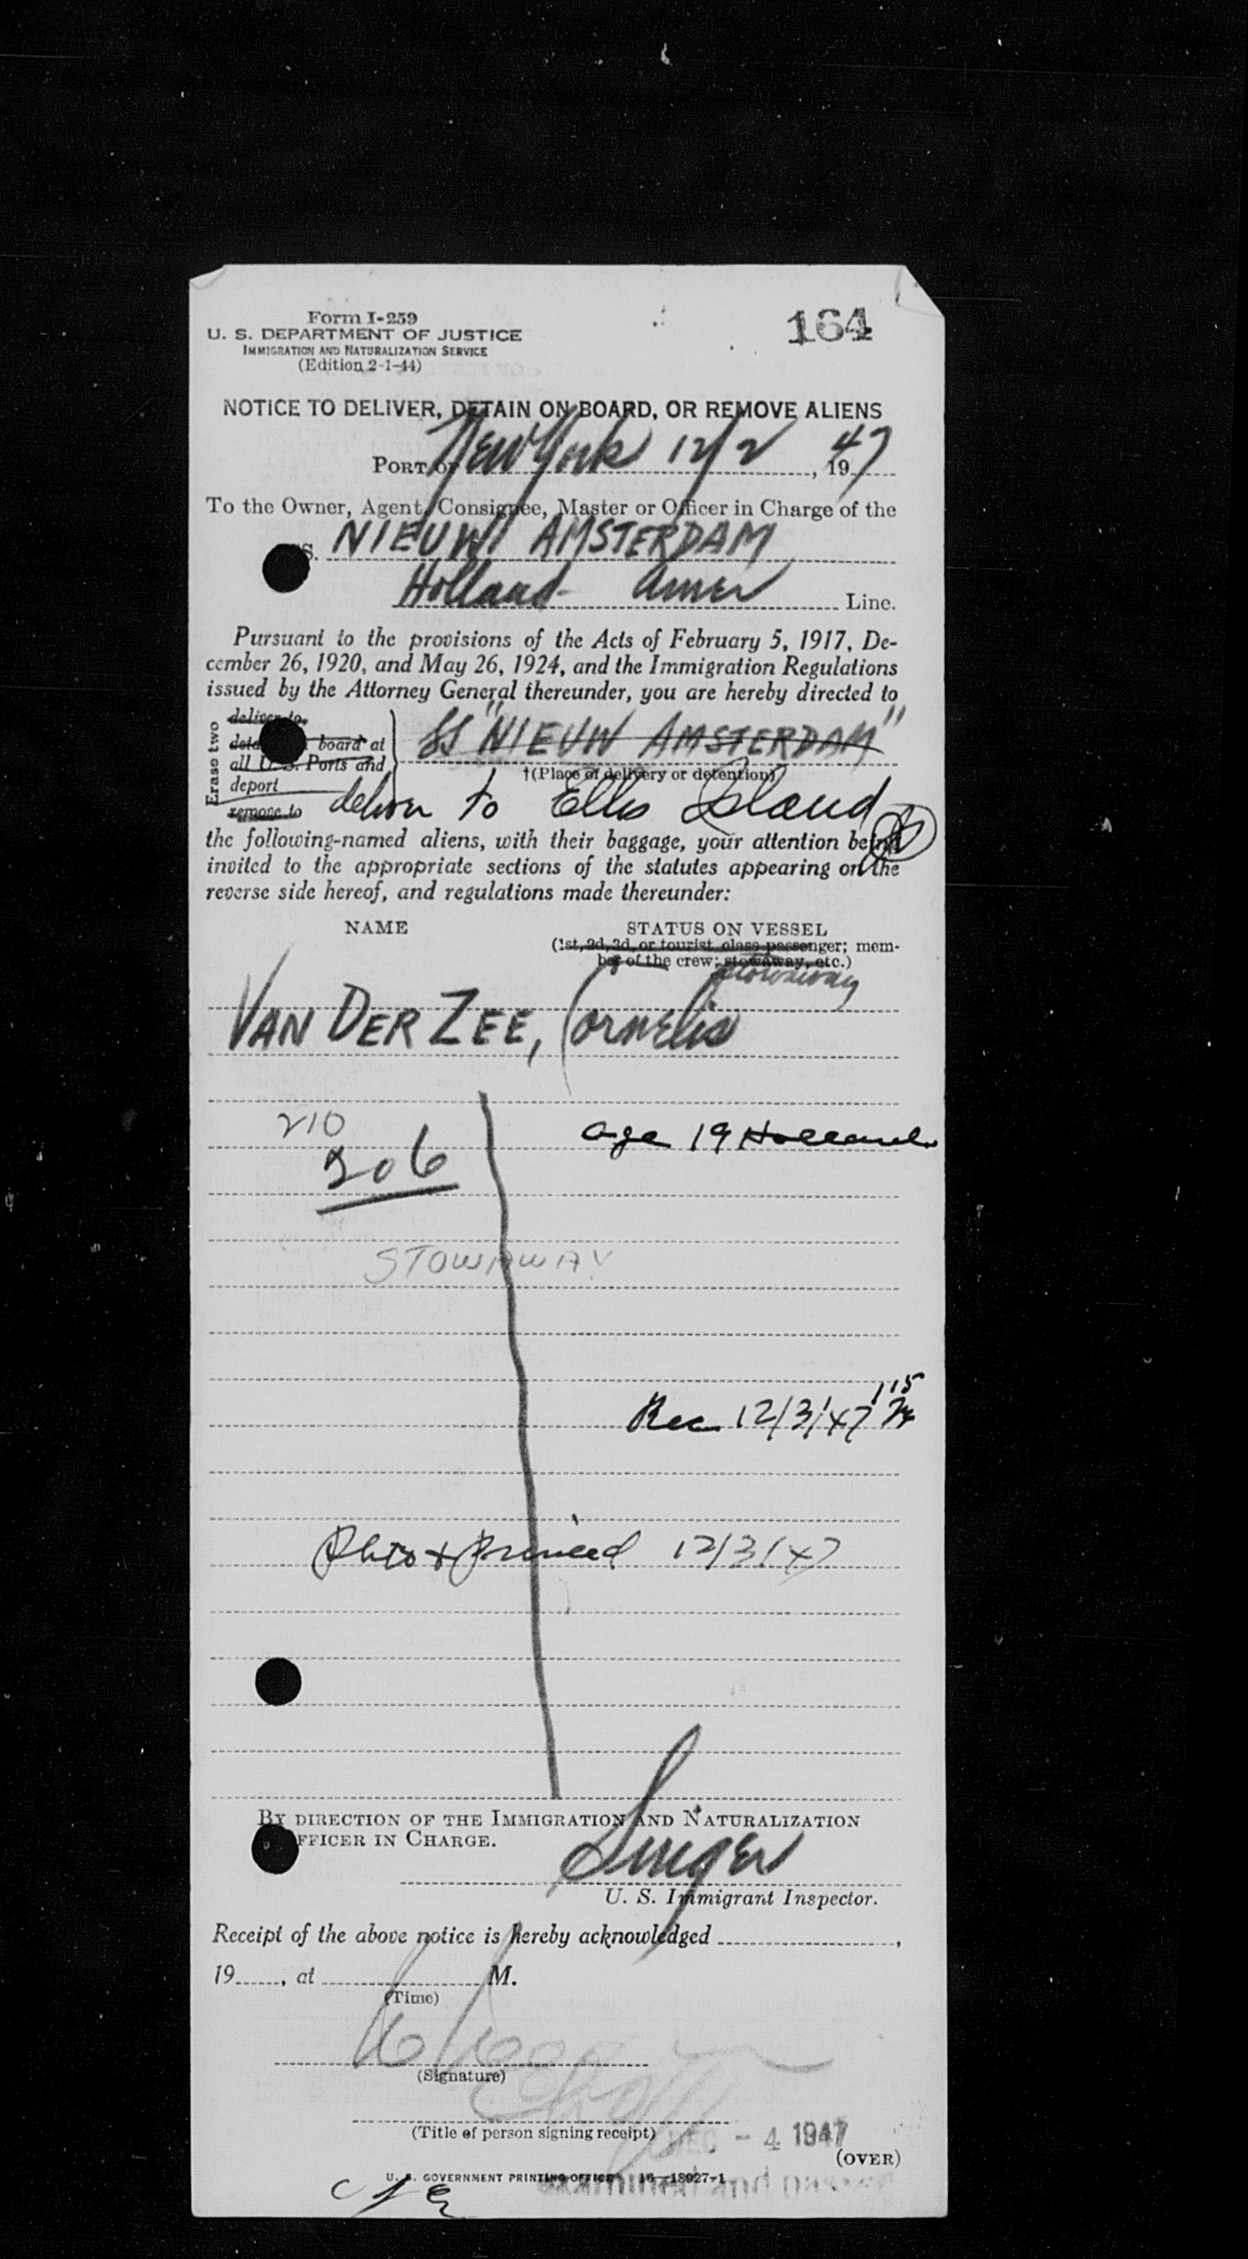 Form I-259
U. S. DEPARTMENT OF JUSTICE
IMMIGRATION AND NATURALIZATION SERVICE
(Edition 2-1-44)
164
NOTICE TO DELIVER, DETAIN ON BOARD, OR REMOVE ALIENS
PORT OF New York 12/2, 1947
To the Owner, Agent, Consignee, Master or Officer in Charge of the
S. NIEUW AMSTERDAM
Holland Amer Line.
Pursuant to the provisions of the Acts of February 5, 1917, De-
cember 26, 1920, and May 26, 1924, and the Immigration Regulations
issued by the Attorney General thereunder, you are hereby directed to
Erase two
deliver to
board at
all U. S. Ports and
deport
remove to
SS "NIEUW AMSTERDAM"
†(Place of delivery or detention)
deliver to Ellis Island
the following-named aliens, with their baggage, your attention being
invited to the appropriate sections of the statutes appearing on the
reverse side hereof, and regulations made thereunder:
NAME
STATUS ON VESSEL
(1st, 2d, 3d, or tourist class passenger; mem-
ber of the crew; stowaway, etc.)
stowaway
VAN DER ZEE, Cornelis
210
age 19 Holland
206
STOWAWAY
Rec 12/3/47 115
Photo + Printed 12/3/47
BY DIRECTION OF THE IMMIGRATION AND NATURALIZATION
OFFICER IN CHARGE.
Singer
U. S. Immigrant Inspector.
Receipt of the above notice is hereby acknowledged ,
19 , at M.
(Time)
(Signature)
(Title of person signing receipt)
DEC - 4 1947
(OVER)
U. S. GOVERNMENT PRINTING OFFICE 16-18927-1